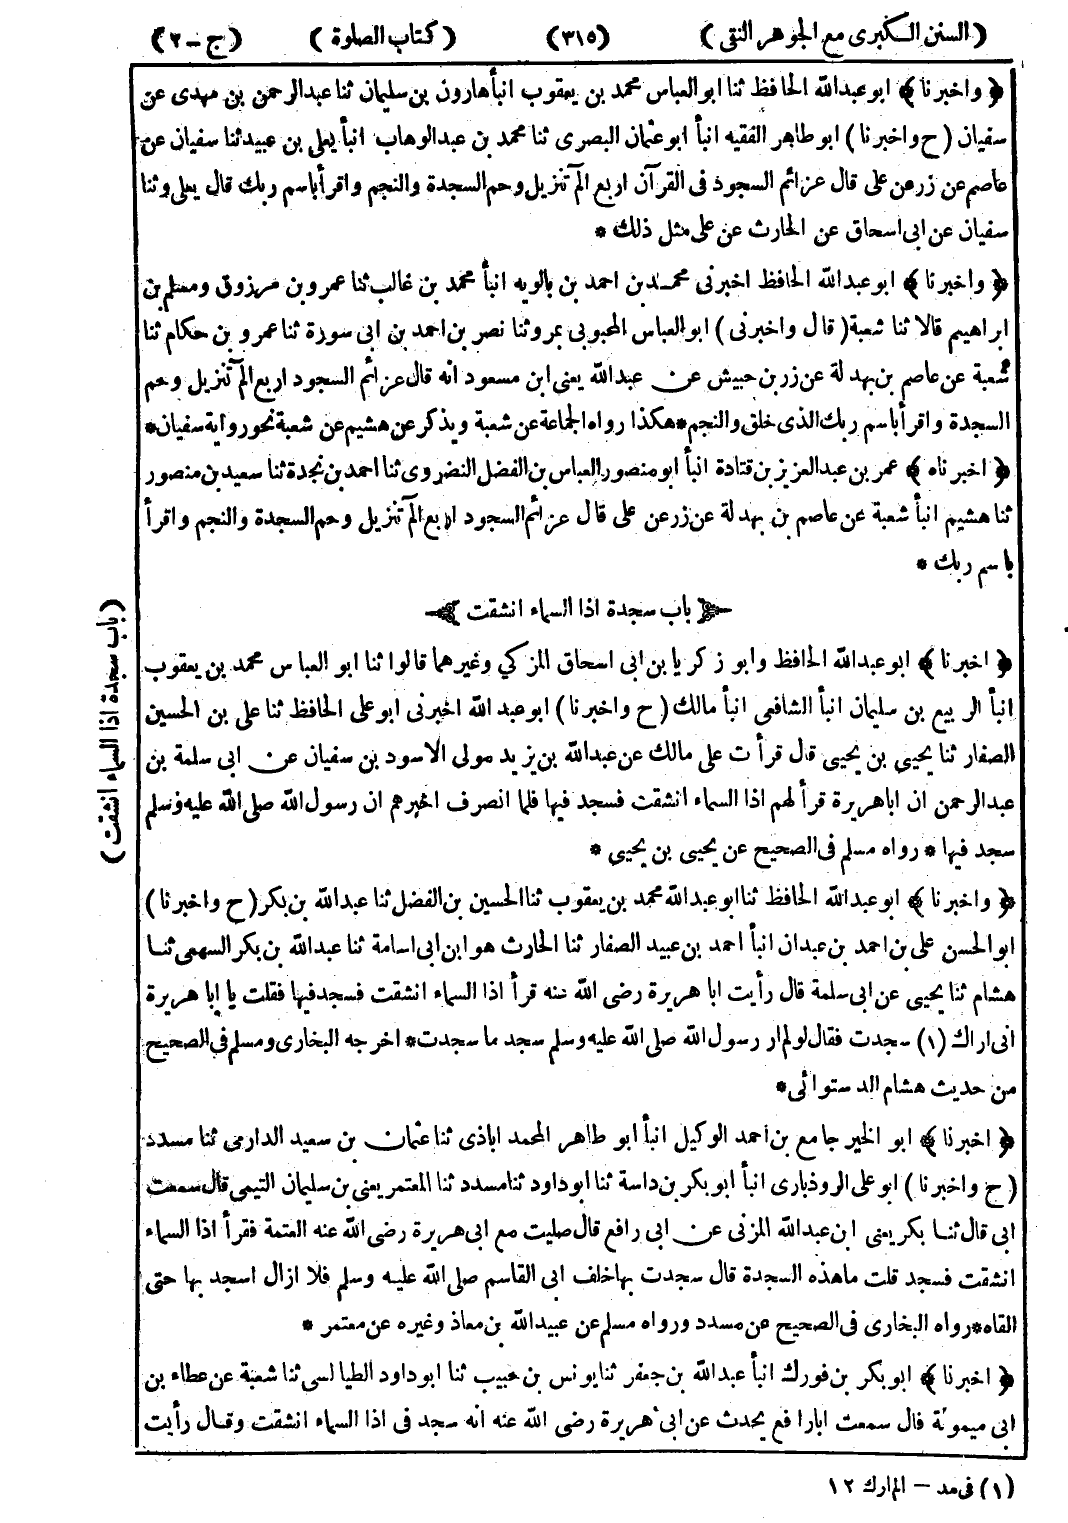 (السنن الكبرى مع الجوهر النقى) (٣١٥) (كتاب الصلوة) (ج-٢)
﴿واخبرنا﴾ ابو عبد الله الحافظ ثنا ابو العباس محمد بن يعقوب انبأ هارون بن سليمان ثنا عبد الرحمن بن مهدى عن
سفيان (ح واخبرنا) ابو طاهر الفقيه انبأ ابو عثمان البصرى ثنا محمد بن عبد الوهاب انبأ يعلى بن عبيد ثنا سفيان عن
عاصم عن زر عن على قال عزائم السجود فى القرآن اربع الم تنزيل وحم السجدة والنجم واقرأ باسم ربك قال يعلى وثنا
سفيان عن ابى اسحاق عن الحارث عن على مثل ذلك *
﴿واخبرنا﴾ ابو عبد الله الحافظ اخبرنى محمد بن احمد بن بالويه انبأ محمد بن غالب ثنا عمرو بن مرزوق ومسلم بن
ابراهيم قالا ثنا شعبة (قال واخبرنى) ابو العباس المحبوبى بمرو ثنا نصر بن احمد بن ابى سورة ثنا عمرو بن حكام ثنا
شعبة عن عاصم بن بهدلة عن زر بن حبيش عن عبد الله يعنى ابن مسعود انه قال عزائم السجود اربع الم تنزيل وحم
السجدة واقرأ باسم ربك الذى خلق والنجم * هكذا رواه الجماعة عن شعبة ويذكر عن هشيم عن شعبة نحو رواية سفيان *
﴿اخبرناه﴾ عمر بن عبد العزيز بن قتادة انبأ ابو منصور العباس بن الفضل النضروى ثنا احمد بن نجدة ثنا سعيد بن منصور
ثنا هشيم انبأ شعبة عن عاصم بن بهدلة عن زر عن على قال عزائم السجود اربع الم تنزيل وحم السجدة والنجم واقرأ
باسم ربك *
باب سجدة اذا السماء انشقت
(باب سجدة اذا السماء انشقت)
﴿اخبرنا﴾ ابو عبد الله الحافظ وابو زكريا بن ابى اسحاق المزكي وغيرهما قالوا ثنا ابو العباس محمد بن يعقوب
انبأ الربيع بن سليمان انبأ الشافعى انبأ مالك (ح واخبرنا) ابو عبد الله اخبرنى ابو على الحافظ ثنا على بن الحسين
الصفار ثنا يحيى بن يحيى قال قرأت على مالك عن عبد الله بن يزيد مولى الاسود بن سفيان عن ابى سلمة بن
عبد الرحمن ان ابا هريرة قرأ لهم اذا السماء انشقت فسجد فيها فلما انصرف اخبرهم ان رسول الله صلى الله عليه وسلم
سجد فيها * رواه مسلم فى الصحيح عن يحيى بن يحيى *
﴿واخبرنا﴾ ابو عبد الله الحافظ ثنا ابو عبد الله محمد بن يعقوب ثنا الحسين بن الفضل ثنا عبد الله بن بكر (ح واخبرنا)
ابو الحسن على بن احمد بن عبدان انبأ احمد بن عبيد الصفار ثنا الحارث هو ابن ابى اسامة ثنا عبد الله بن بكر السهمى ثنا
هشام ثنا يحيى عن ابى سلمة قال رأيت ابا هريرة رضى الله عنه قرأ اذا السماء انشقت فسجد فيها فقلت يا ابا هريرة
انى اراك (١) سجدت فقال لو لم ار رسول الله صلى الله عليه وسلم سجد ما سجدت * اخرجه البخارى ومسلم فى الصحيح
من حديث هشام الدستوائى *
﴿اخبرنا﴾ ابو الخير جامع بن احمد الوكيل انبأ ابو طاهر المحمد اباذى ثنا عثمان بن سعيد الدارمى ثنا مسدد
(ح واخبرنا) ابو على الروذبارى انبأ ابو بكر بن داسة ثنا ابو داود ثنا مسدد ثنا المعتمر يعنى بن سليمان التيمى قال سمعت
ابى قال ثنا بكر يعنى ابن عبد الله المزنى عن ابى رافع قال صليت مع ابى هريرة رضى الله عنه العتمة فقرأ اذا السماء
انشقت فسجد قلت ما هذه السجدة قال سجدت بها خلف ابى القاسم صلى الله عليه وسلم فلا ازال اسجد بها حتى
القاه * رواه البخارى فى الصحيح عن مسدد ورواه مسلم عن عبيد الله بن معاذ وغيره عن معتمر *
﴿اخبرنا﴾ ابو بكر بن فورك انبأ عبد الله بن جعفر ثنا يونس بن حبيب ثنا ابو داود الطيالسى ثنا شعبة عن عطاء بن
ابى ميمونة قال سمعت ابا رافع يحدث عن ابى هريرة رضى الله عنه انه سجد فى اذا السماء انشقت وقال رأيت
(١) فى مد - الم ارك ١٢